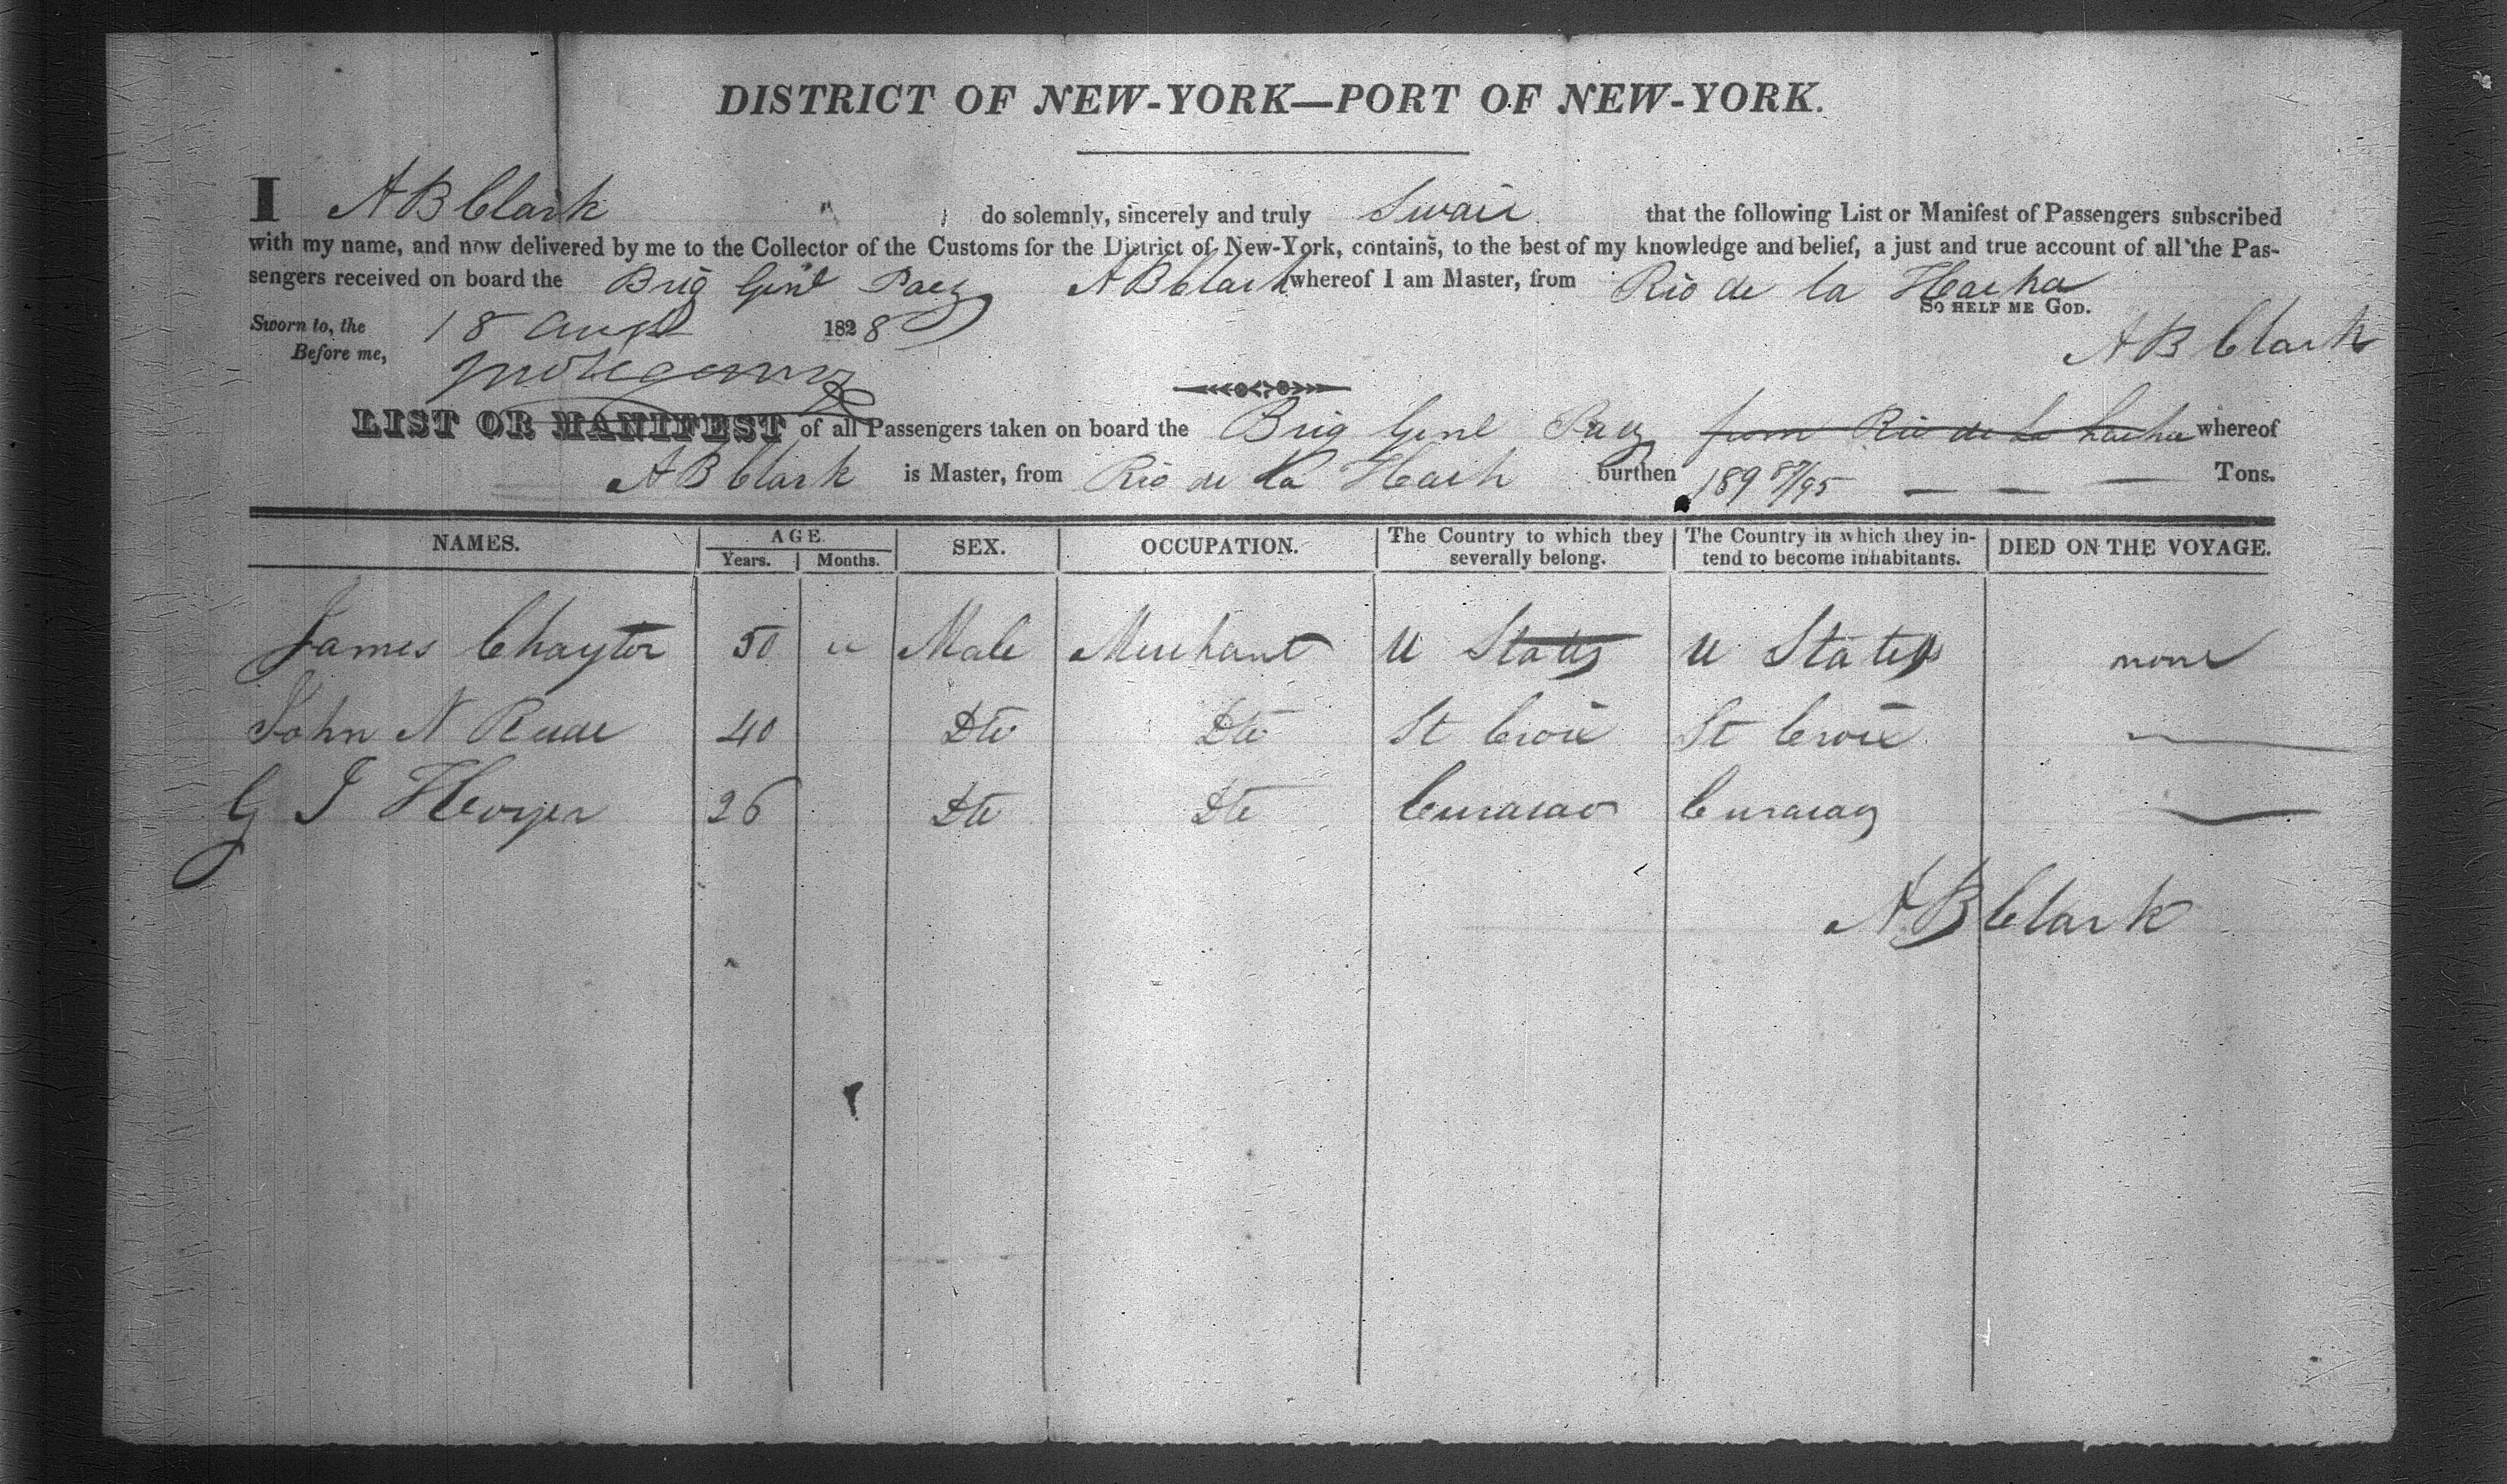 DISTRICT OF NEW-YORK—PORT OF NEW-YORK.
I A B Clark do solemnly, sincerely and truly Swair that the following List or Manifest of Passengers subscribed
with my name, and now delivered by me to the Collector of the Customs for the District of New-York, contains, to the best of my knowledge and belief, a just and true account of all the Pas-
sengers received on board the Brig Genl Paez A B Clark whereof I am Master, from Rio de la Hacha
SO HELP ME GOD.
Sworn to, the 18 Augt 1828
A B Clark
Before me,
LIST OR MANIFEST of all Passengers taken on board the Brig Genl Paez from Rio de La hacha whereof
A B Clark is Master, from Rio de La Hach burthen 189 87/95 — — — Tons.
NAMES. AGE. SEX. OCCUPATION. The Country to which they severally belong. The Country in which they in-tend to become inhabitants. DIED ON THE VOYAGE.
Years. Months.
James Chayter 50 " Male Merchant U States U States none
John N 40 Dto Dto St Croix St Croix —
G J 26 Dto Dto Curacao Curacao —
A B Clark